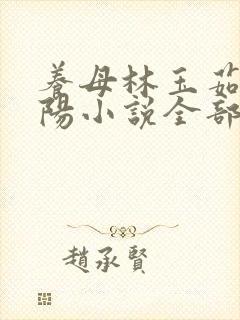 養母林玉茹
陽小説全部
趙承賢